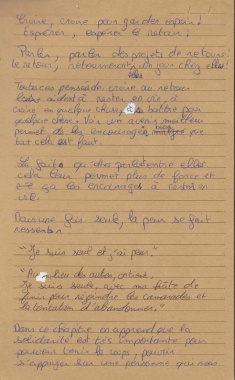 Croire, croire pour garder espoir!
Espérer, espérer le retour;
Parler, parler des projets de retour!
le retour, retourneront un jour chez elles!
Toutes ces pensées de croire au retour
les aident à rester en vie, à
croire en quelque chose, se battre pour
quelque chose. Voir un avenir meilleur
permet de les encourager même que
tout cela est faux.
Le fait qu'elles parlent entre elles
cela leur permet plus de force et
ça les encourages à rester en
vie.
Dans une fois seule, la peur se fait
ressentir
"Je suis seule et j'ai peur."
"Au milieu des autres, on tient,
Je suis seule, avec ma hâte de
finir pour rejoindre les camarades et
la tentation d'abandonner."
Dans ce chapitre on apprend que la
solidarité est très importante pour
pouvoir tenir le coup, pouvoir
s'appuyer sur une personne qui nous